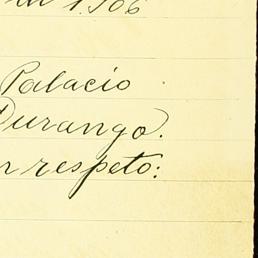 1.906
Palacio
Durango.
respeto: